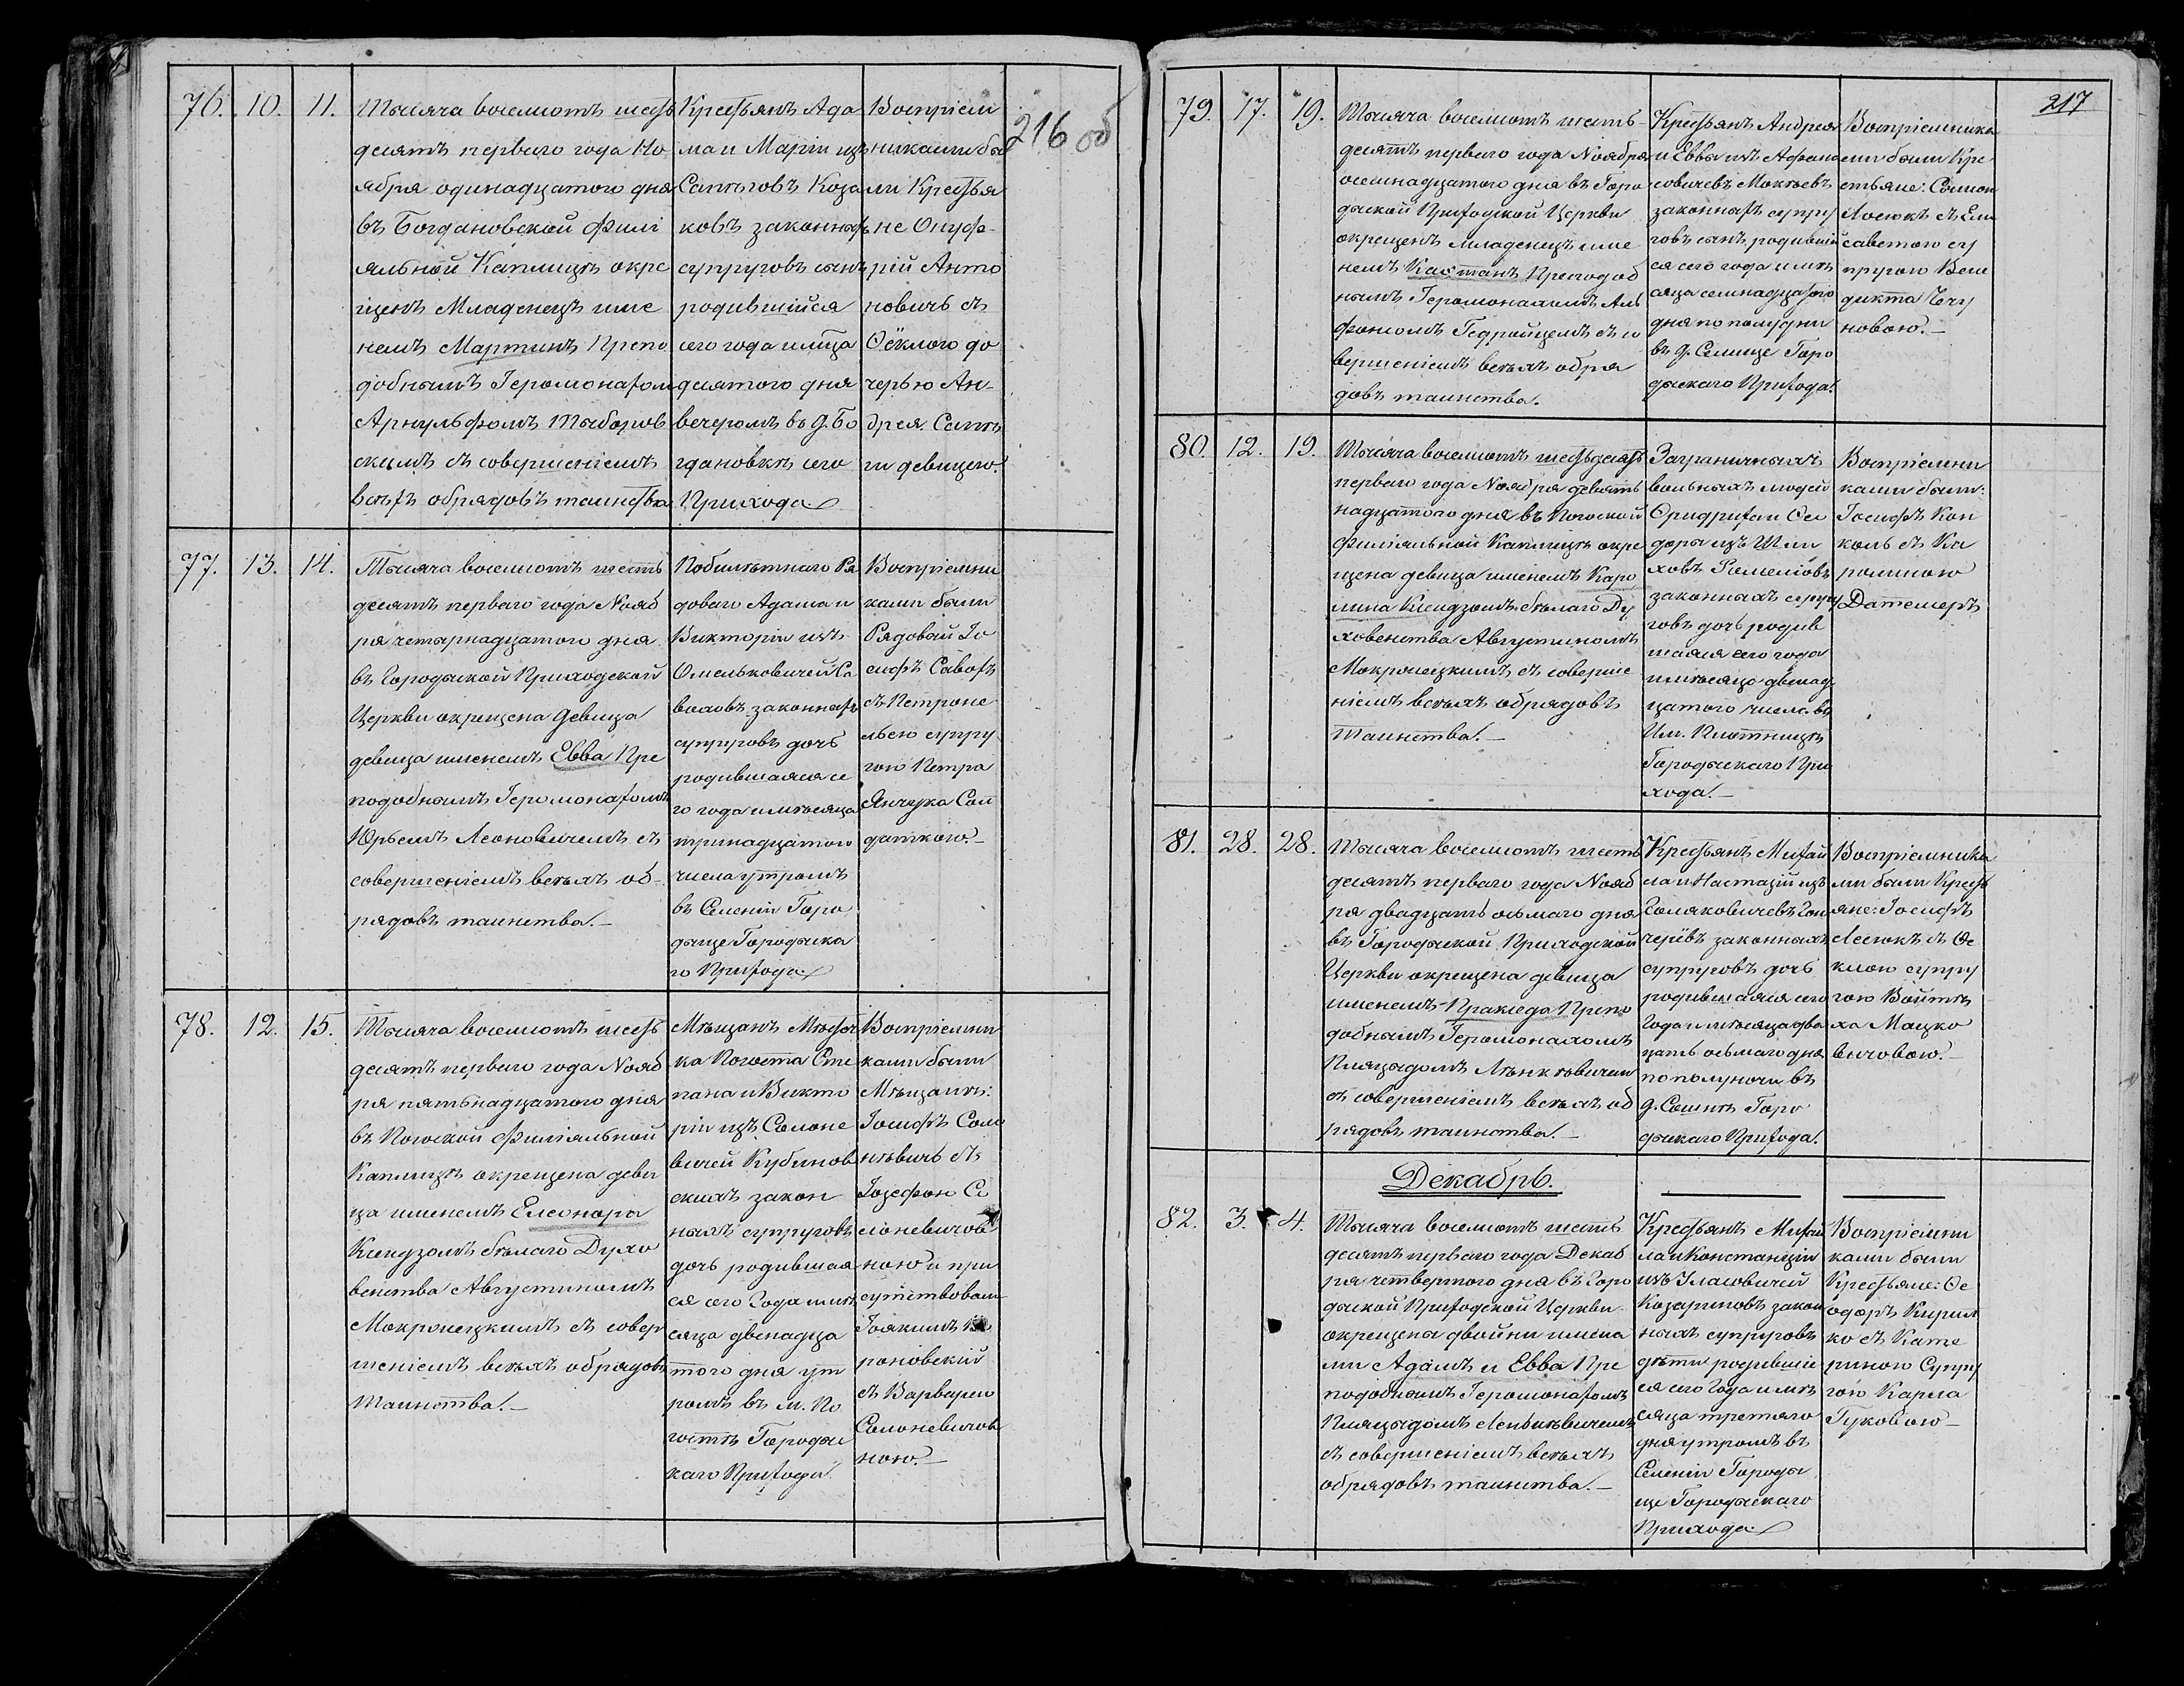 216 об
76. 10. 11.
Тысяча восемьсотъ шесть
десятъ перваго года Но
ября одинадцатого дня
въ Богдановской Филі
яльной Каплицѣ окре
щенъ Младенецъ име
немъ Мартинъ Препо
добнымъ Іеромонахом
Арнульфомъ
скимъ съ совершеніемъ
всѣхъ обрядовъ таинства
Крестьянъ Ада
ма и Маріи изъ
Сапѣговъ Коза
ковъ законныхъ
супруговъ сынъ
родившійся
сего года и мѣсяца
десятого дня
вечеромъ въ д. Бо
гдановкѣ сего
Прихода
Воспріем
никами бы
ли Крестья
не Онуф-
рій Анто
новичь съ
Ѳёклою до
черью Ан-
дрея Сапѣ
ги девицею.
77. 13. 14.
Тысяча восемсотъ шесть
десятъ перваго года Нояб
ря четырнадцатого дня
въ Городыской Приходской
Церкви окрещена Девица
девица именемъ Евва Пре
подобнымъ Іеромонахомъ
Юрьемъ Леоновичемъ съ
совершеніемъ всѣхъ об-
рядовъ таинства.
Побилѣтнаго Ря
доваго Адама и
Викторіи изъ
Омельковичей Са
воховъ законныхъ
супруговъ дочь
родившаяся се
го года и мѣсяца
тринадцатого
числа утромъ
въ Селеніи Горо
дище Городыска
го Прихода
Воспріемни
ками были
Рядовой Іо
сифъ Савохъ
съ Петроне
лею супру
гою Петра
Янчука Сол
даткою.
78. 12. 15.
Тысяча восемсотъ шесть
десятъ перваго года Нояб
ря пятьнадцатого дня
въ Погоской Филіяльной
Каплицѣ окрещена деви
ца именемъ Елеонора
Ксендзомъ бѣлаго Духо
венства Августиномъ
Мокронецкимъ съ совер
шеніемъ всѣхъ обрядовъ
таинства.
Мѣщанъ Мѣстеч
ка Погоста Сте
пана и Викто
ріи изъ Солоне
вичей Кубинов
скихъ закон
ныхъ супруговъ
дочь родившая
ся сего Года и мѣ
сяца двенадца
того дня ут
ромъ въ м. По
гостѣ Городыс
каго Прихода
Воспріемни
ками были
Мѣщане:
Іосифъ Соло
нѣвичь съ
Іозефою Со
лоневичов
ною и при
сутствовали
Іоякимъ
роновскій
съ Варварою
Солоневичов
ною.
217
79. 17. 19.
Тысяча восемсотъ шесть-
десятъ перваго года Ноября
осемнадцатого дня въ Горо
дыской Приходской Церкви
окрещенъ младенецъ име
немъ Каэтанъ Преподоб
нымъ Іеромонахомъ Аль
фонсомъ Гедройцемъ съ со
вершеніемъ всѣхъ обря
довъ таинства.
Крестьянъ Андрея
и Еввы изъ Афана
совичевъ Моктевъ
законныхъ супру
говъ сынъ, родившій
ся сего года и мѣ
сяца семнадцатого
дня по полудни
въ д. Селище Горо
дыскаго Прихода.
Воспріемника
ми были Кре
стьяне: Симон
Лосюкъ съ Ели
саветою су
пругою Вене
дикта Чечу
новою.
80. 12. 19.
Тысяча восемсотъ шестьдесятъ
перваго года Ноября девять
надцатого дня въ Погоской
Филіяльной Каплицѣ окре
щена девица именемъ Каро
лина Ксендзомъ бѣлаго Ду
ховенства Августиномъ
Мокронецкимъ съ соверше
ніемъ всѣхъ обрядовъ
таинства.
Заграничныхъ
вольныхъ людей
Фридриха и Ѳео
доры изъ Шли
ховъ
законныхъ супру
говъ дочь родив
шаяся сего года
и мѣсяца двенад
цатого числа въ
Им. Плотницѣ
Городыскаго При
хода.
Воспріемни
ками были:
Іосифъ Кон
коль съ Ка
ролиною
Датемеръ
81. 28. 28.
Тысяча восемсотъ шесть
десятъ перваго года Нояб
ря двадцать осьмаго дня
въ Городыской Приходской
Церкви окрещена девица
именемъ Пракседа Препо
добнымъ Іеромонахомъ
Пляцыдомъ Лѣнкѣвичем
съ совершеніемъ всѣхъ об
рядовъ таинства.
Крестьянъ Михаи
ла и Настазіи изъ
Голяковичевъ Гон
черёвъ законныхъ
супруговъ дочь
родившаяся сего
Года и мѣсяца два
цать осьмаго дня
по полуночи въ
д. Сошнѣ Горо
дыскаго Прихода.
Воспріемника
ми были Кресть
яне: Іосифъ
Лесюкъ съ Ѳе
клою супру
гою Войтѣ
ха Мацко
вичовою.
Декабрь.
82. 3. 4.
Тысяча восемсотъ шесть
десятъ перваго года Декаб
ря четвертого дня въ Горо
дыской Приходской Церкви
окрещены двойни имена
ми Адамъ и Евва Пре
подобнымъ Іеромонахомъ
Пляцыдомъ Ленькѣвичемъ
съ совершеніемъ всѣхъ
обрядовъ таинства.
Крестьянъ Михаи
ла и Констанціи
изъ Гласовичей
Козариновъ закон
ныхъ супруговъ
дѣти родившіе
ся сего Года и мѣ
сяца третяго
дня утромъ въ
Селеніи Городы
ще Городыскаго
Прихода
Воспріемни
ками были
Крестьяне: Ѳе
одоръ Кирил
ко съ Кате
риною Супру
гою Карла
Гуковою